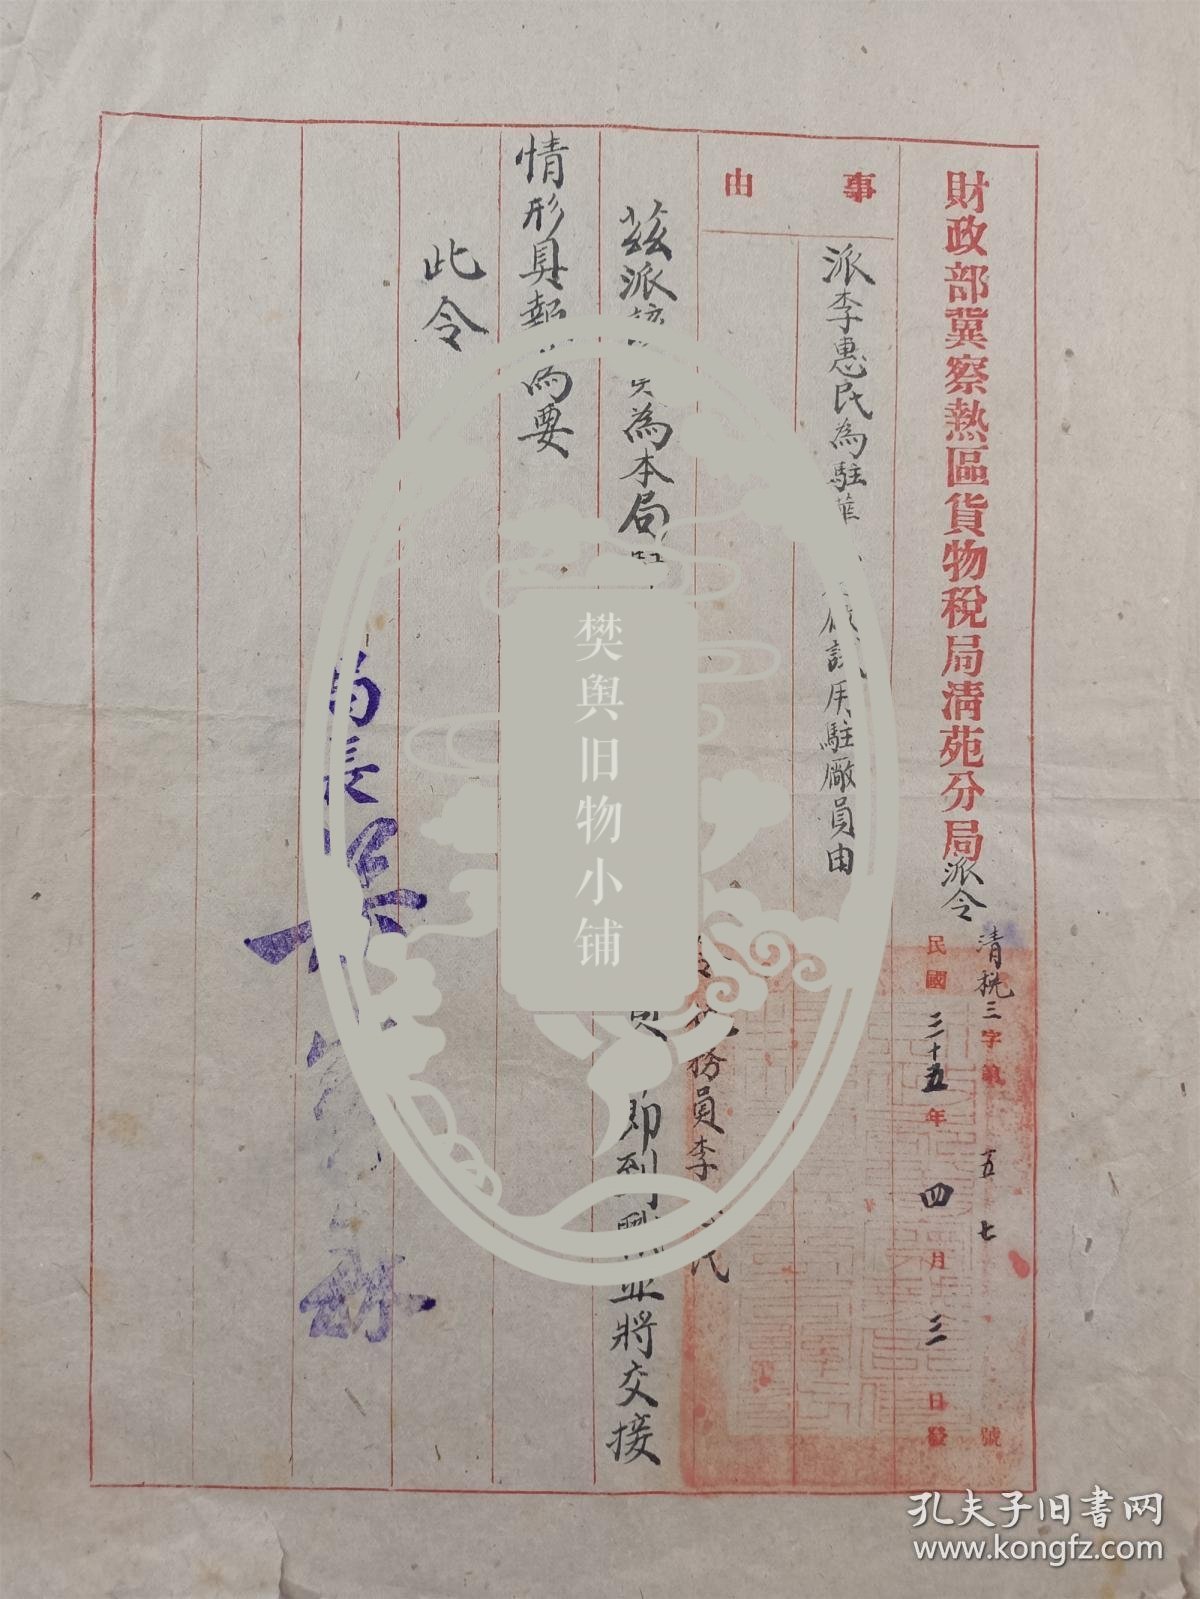 財政部冀察熱區貨物稅局清苑分局派令
清稅三字第五七號
民國三十五年四月三日發
事由
派李惠民為駐華
試用駐廠員由
務員李 民
茲派 為本局
員 即到職 並將交接
情形具報為要
此令
局長
樊舆旧物小铺
孔夫子旧书网
www.kongfz.com